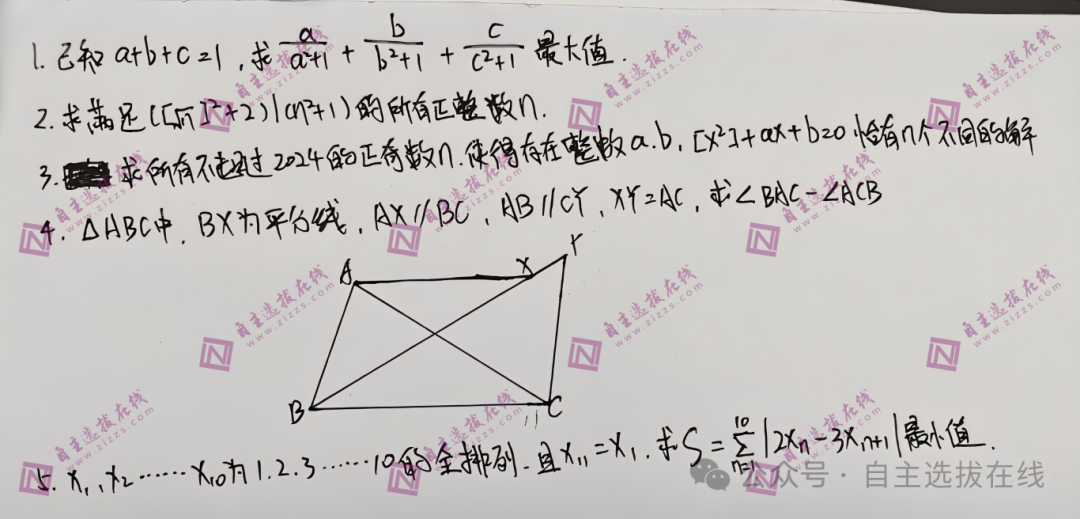 1. 已知 a+b+c=1, 求 a/(a²+1) + b/(b²+1) + c/(c²+1) 最大值.
2. 求满足 ([√n]²+2)|(n²+1) 的所有正整数n.
3. 求所有不超过2024的正奇数n. 使得存在整数a.b, [x²]+ax+b=0 恰有n个不同的解
4. △ABC中, BX为平分线, AX//BC, AB//CY, XY=AC, 求∠BAC-∠ACB
A X Y
B C
5. x₁, x₂ …… x₁₀为1.2.3……10的全排列. 且x₁₁=x₁. 求S=∑_{n=1}^{10}|2xₙ-3xₙ₊₁|最小值.
公众号 · 自主选拔在线
自主选拔在线
www.zizzs.com